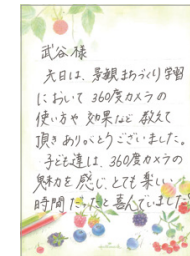 武谷様
先日は、景観まちづくり学習
において 360度カメラの
使い方や 効果など 教えて
頂きありがとうございました。
子ども達は、360度カメラの
魅力を感じ、とても楽しい
時間だったと喜んでいました